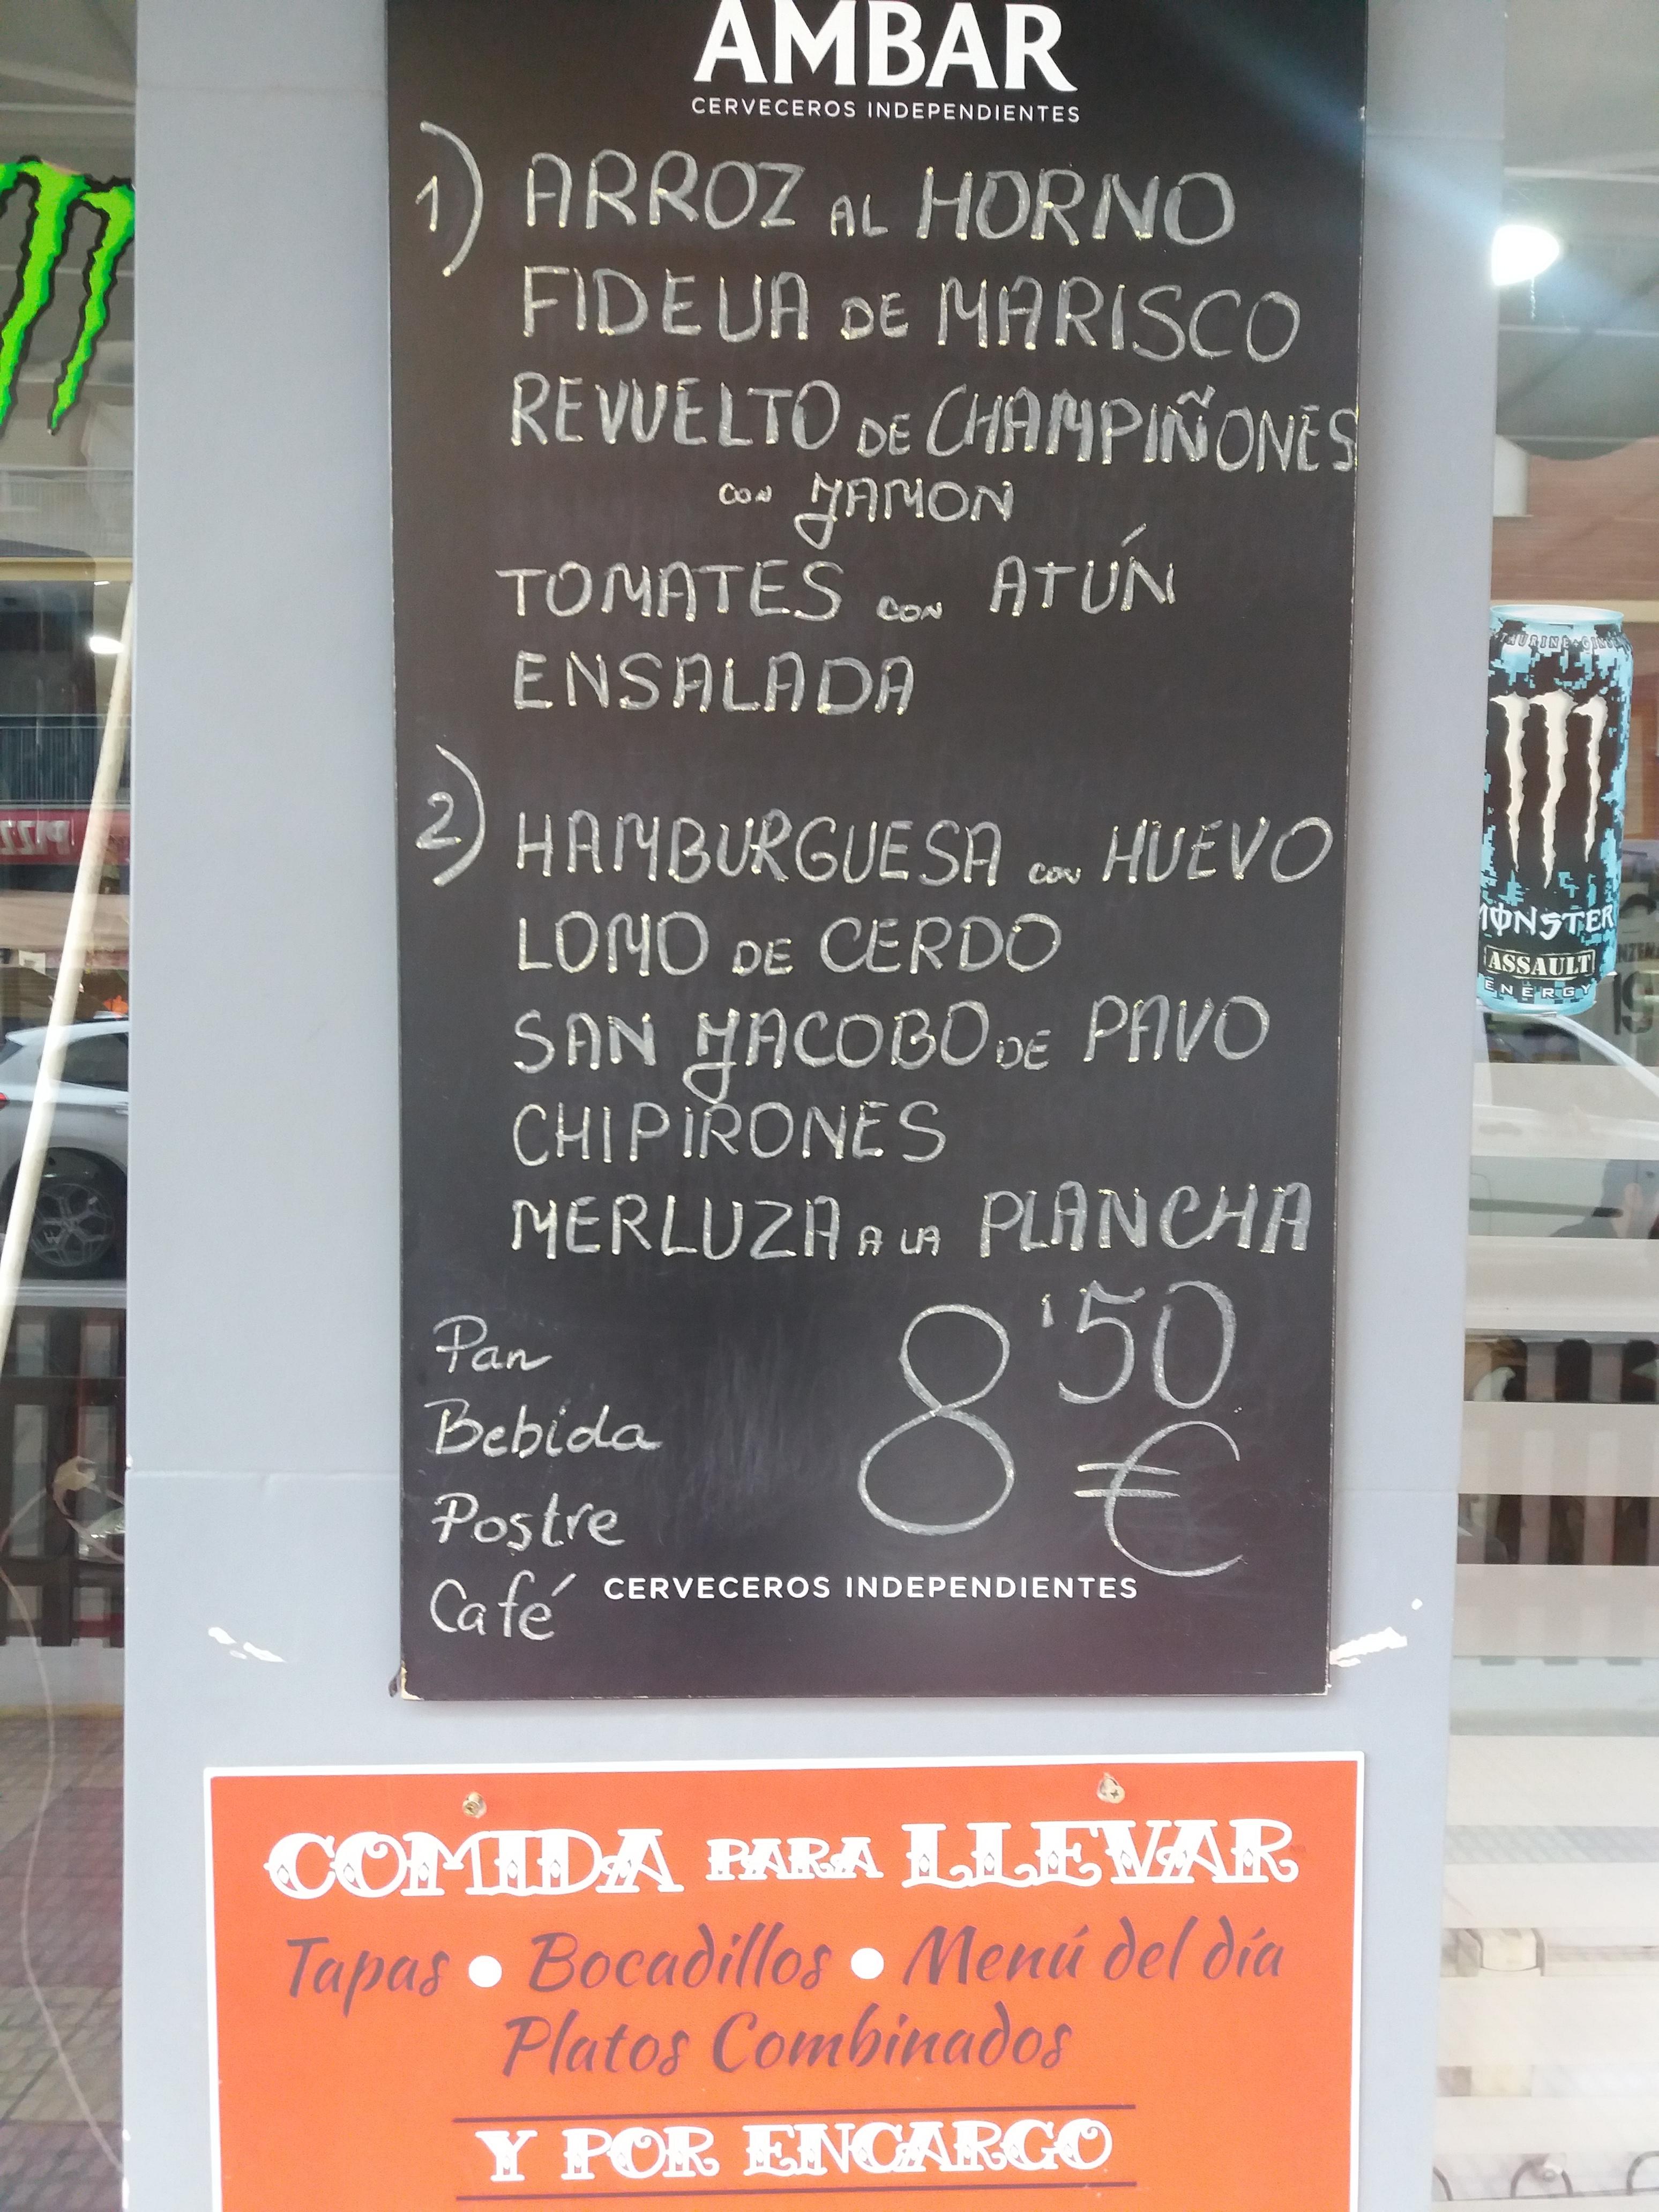 AMBAR
CERVECEROS INDEPENDIENTES
1) ARROZ AL HORNO
FIDEUA DE MARISCO
REVUELTO DE CHAMPIÑONES
CON JAMON
TOMATES CON ATÚN
ENSALADA
2) HAMBURGUESA CON HUEVO
LOMO DE CERDO
SAN JACOBO DE PAVO
CHIPIRONES
MERLUZA A LA PLANCHA
Pan
Bebida
Postre
Café
8'50
€
CERVECEROS INDEPENDIENTES
COMIDA PARA LLEVAR
Tapas • Bocadillos • Menú del día
Platos Combinados
Y POR ENCARGO
MONSTER
ASSAULT
ENERGY